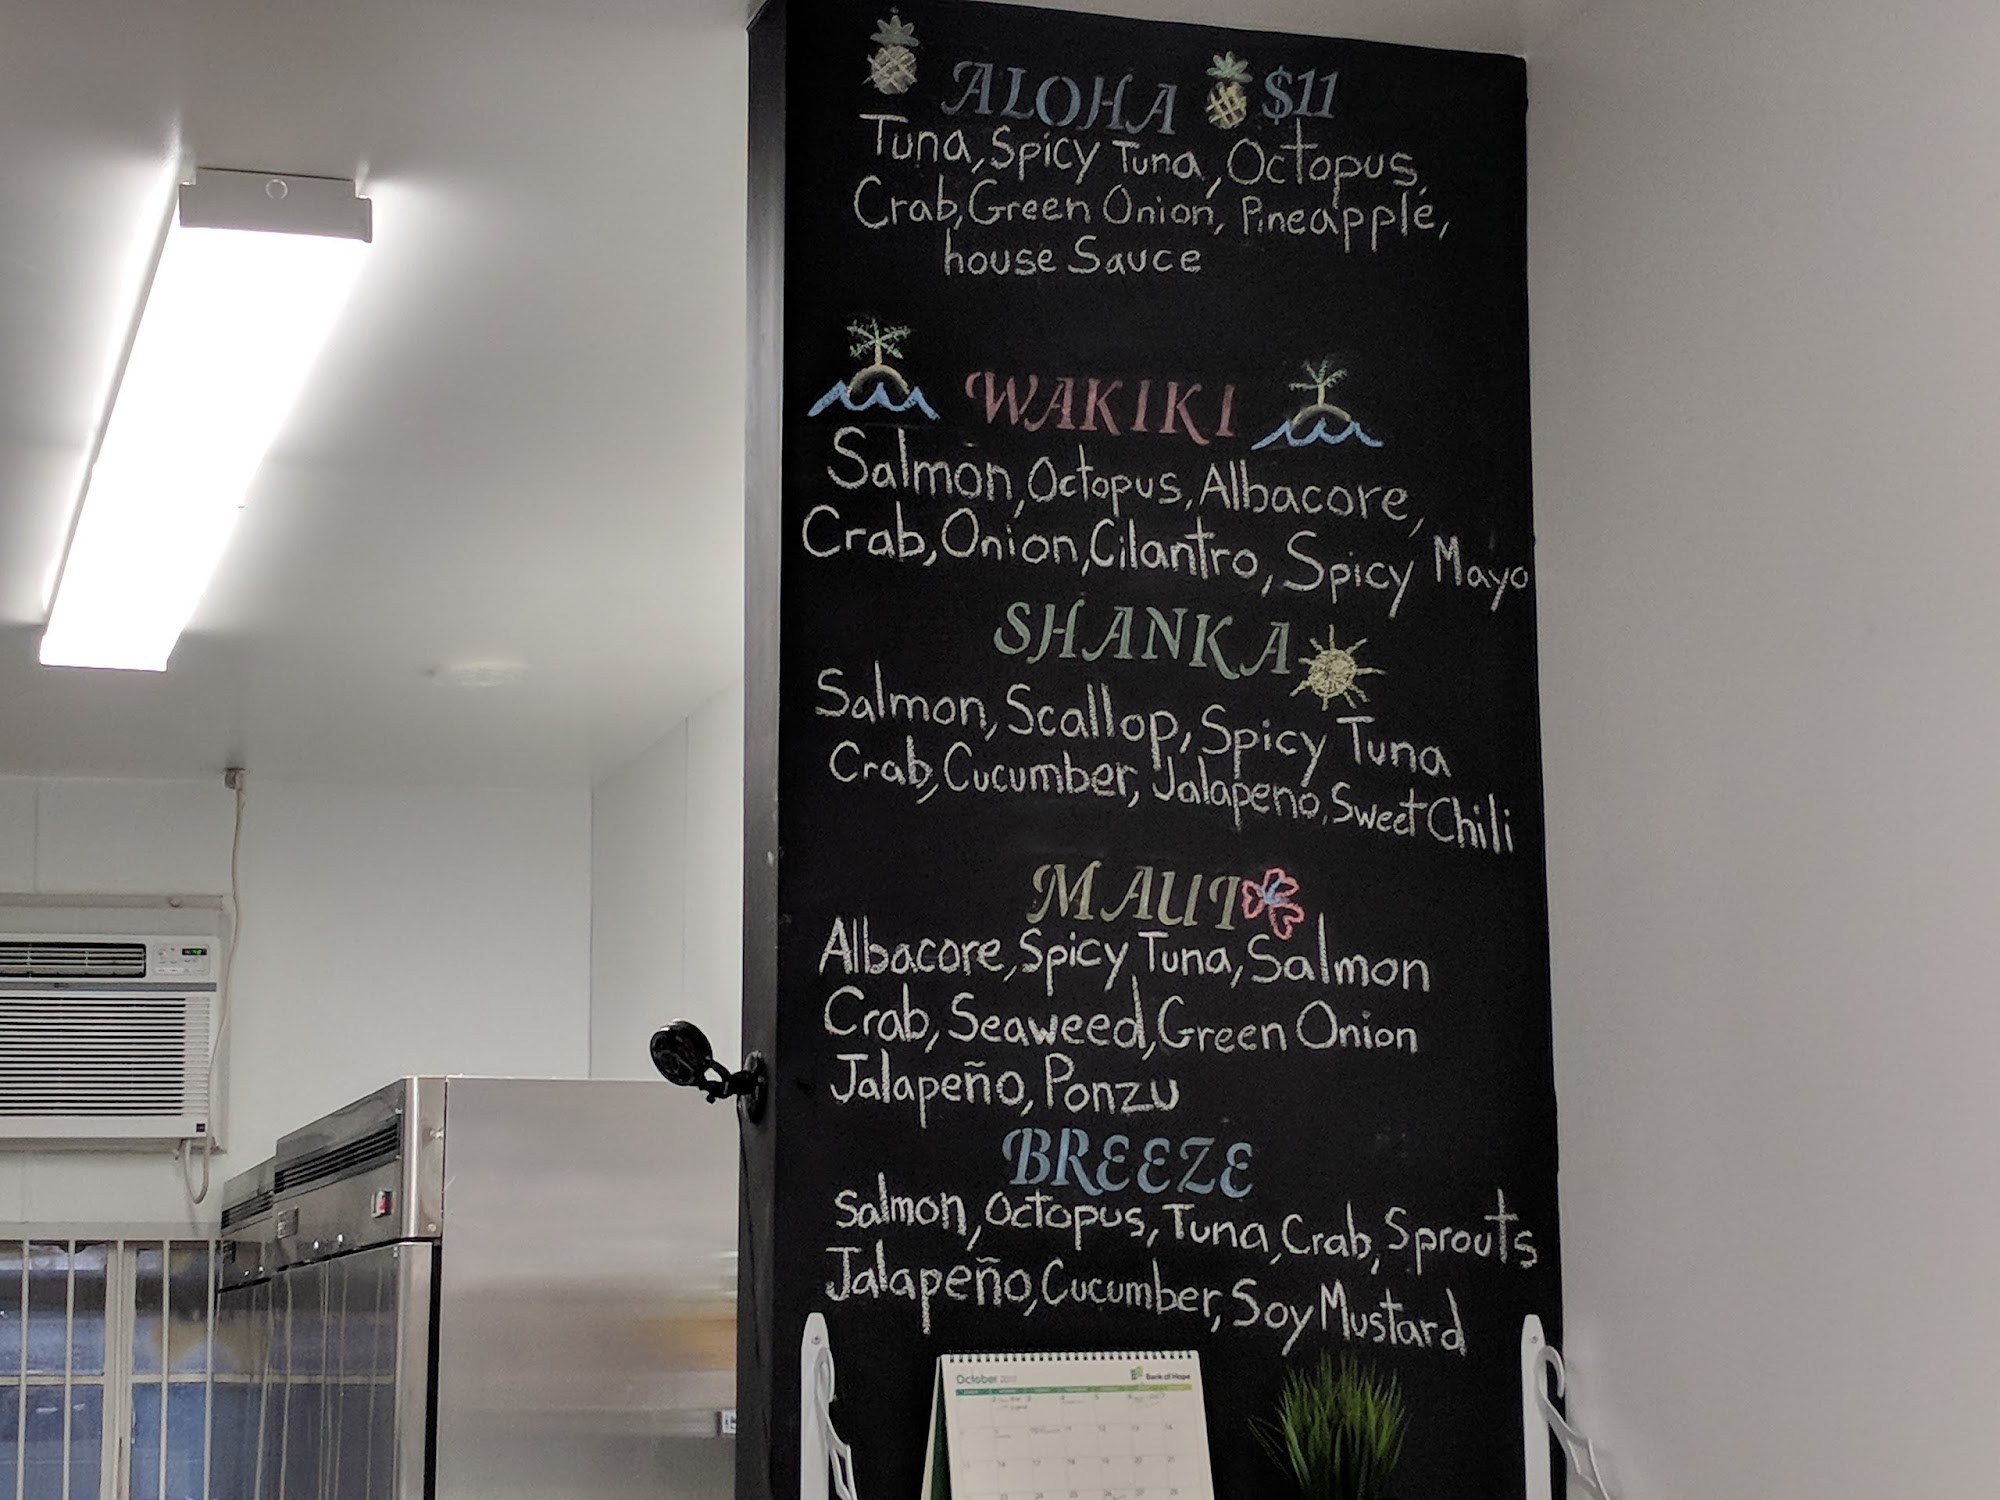 ALOHA $11
Tuna, Spicy Tuna, Octopus,
Crab, Green Onion, Pineapple,
house Sauce
WAKIKI
Salmon, Octopus, Albacore,
Crab, Onion, Cilantro, Spicy Mayo
SHANKA
Salmon, Scallop, Spicy Tuna
Crab, Cucumber, Jalapeno, Sweet Chili
MAUI
Albacore, Spicy Tuna, Salmon
Crab, Seaweed, Green Onion
Jalapeño, Ponzu
BREEZE
Salmon, Octopus, Tuna, Crab, Sprouts
Jalapeño, Cucumber, Soy Mustard
October 2017 Bank of Hope